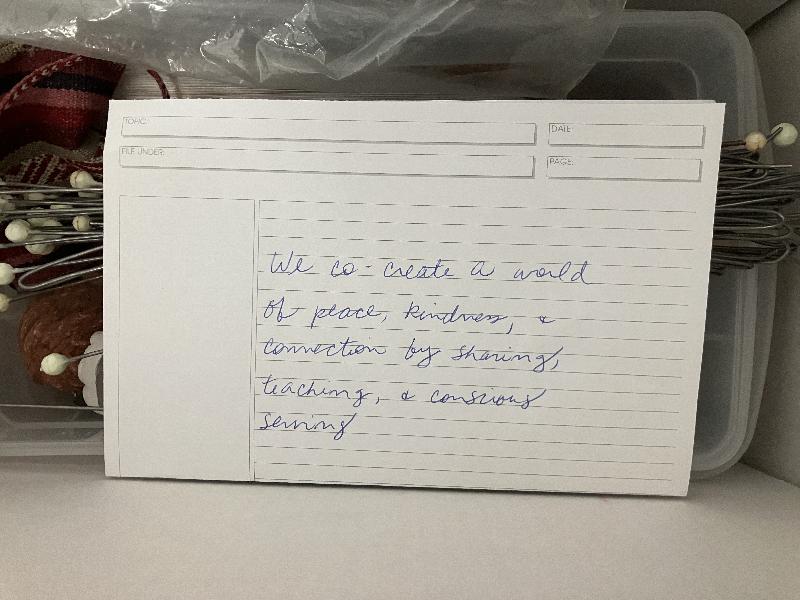 TOPIC:
DATE:
FILE UNDER:
PAGE:
We co-create a world
of peace, kindness, &
connection by sharing,
teaching, & conscious
serving